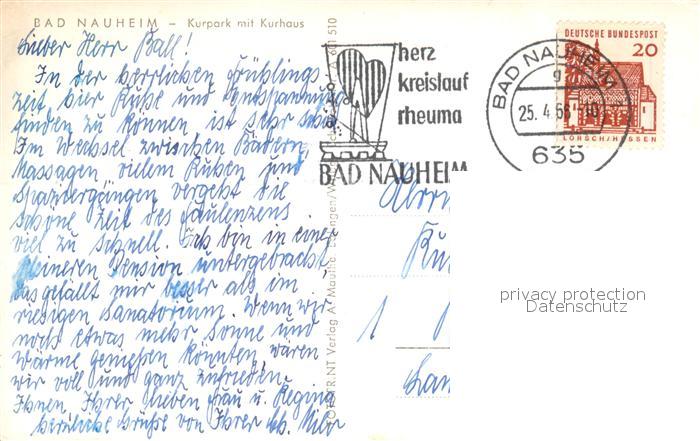 BAD NAUHEIM – Kurpark mit Kurhaus
Lieber Herr Ball!
In der herrlichen Frühlings
zeit hier Ruhe und Entspannung
finden zu können, ist sehr schön
Im Wechsel zwischen Bädern
Massagen vielem Ruhen und
Spaziergängen vergeht die
schöne Zeit des Faulenzens
viel zu schnell. Ich bin in einer
kleineren Pension untergebracht
das gefällt mir besser als im
riesigen Sanatorium. Wenn wir
noch etwas mehr Sonne und
Wärme genießen könnten wären
wir voll und ganz zufrieden.
Ihnen, Ihrer lieben Frau u. Regina
herzliche Grüße von Ihrer
herz
kreislauf
rheuma
BAD NAUHEIM
BAD NAUHEIM
25. 4. 66
635
DEUTSCHE BUNDESPOST
20
LORSCH/HESSEN
1
privacy protection
Datenschutz